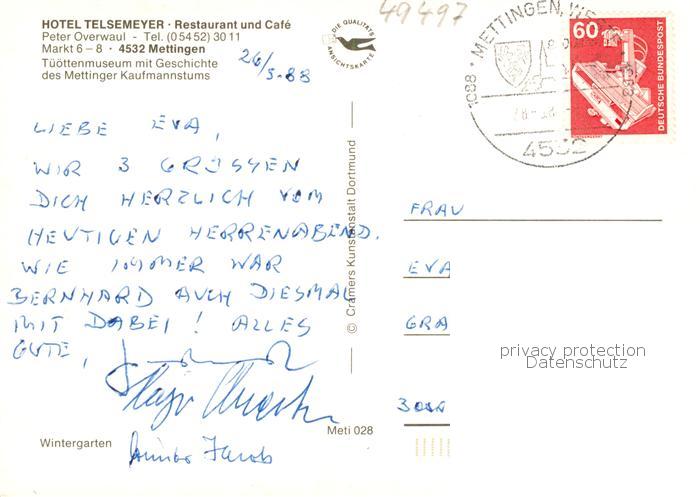 HOTEL TELSEMEYER · Restaurant und Café
Peter Overwaul - Tel. (05452) 3011
Markt 6 – 8 · 4532 Mettingen
Tüöttenmuseum mit Geschichte
des Mettinger Kaufmannstums
26/5.88
DIE QUALITÄTS
ANSICHTSKARTE
49497
METTINGEN, WESTF
4532
60
DEUTSCHE BUNDESPOST
LIEBE EVA,
WIR 3 GRÜSSEN
DICH HERZLICH VOM
HEUTIGEN HERRENABEND.
WIE IMMER WAR
BERNHARD AUCH DIESMAL
MIT DABEI! ALLES
GUTE,
© Cramers Kunstanstalt Dortmund
FRAU
EVA
GRA
privacy protection
Datenschutz
Wintergarten
Meti 028